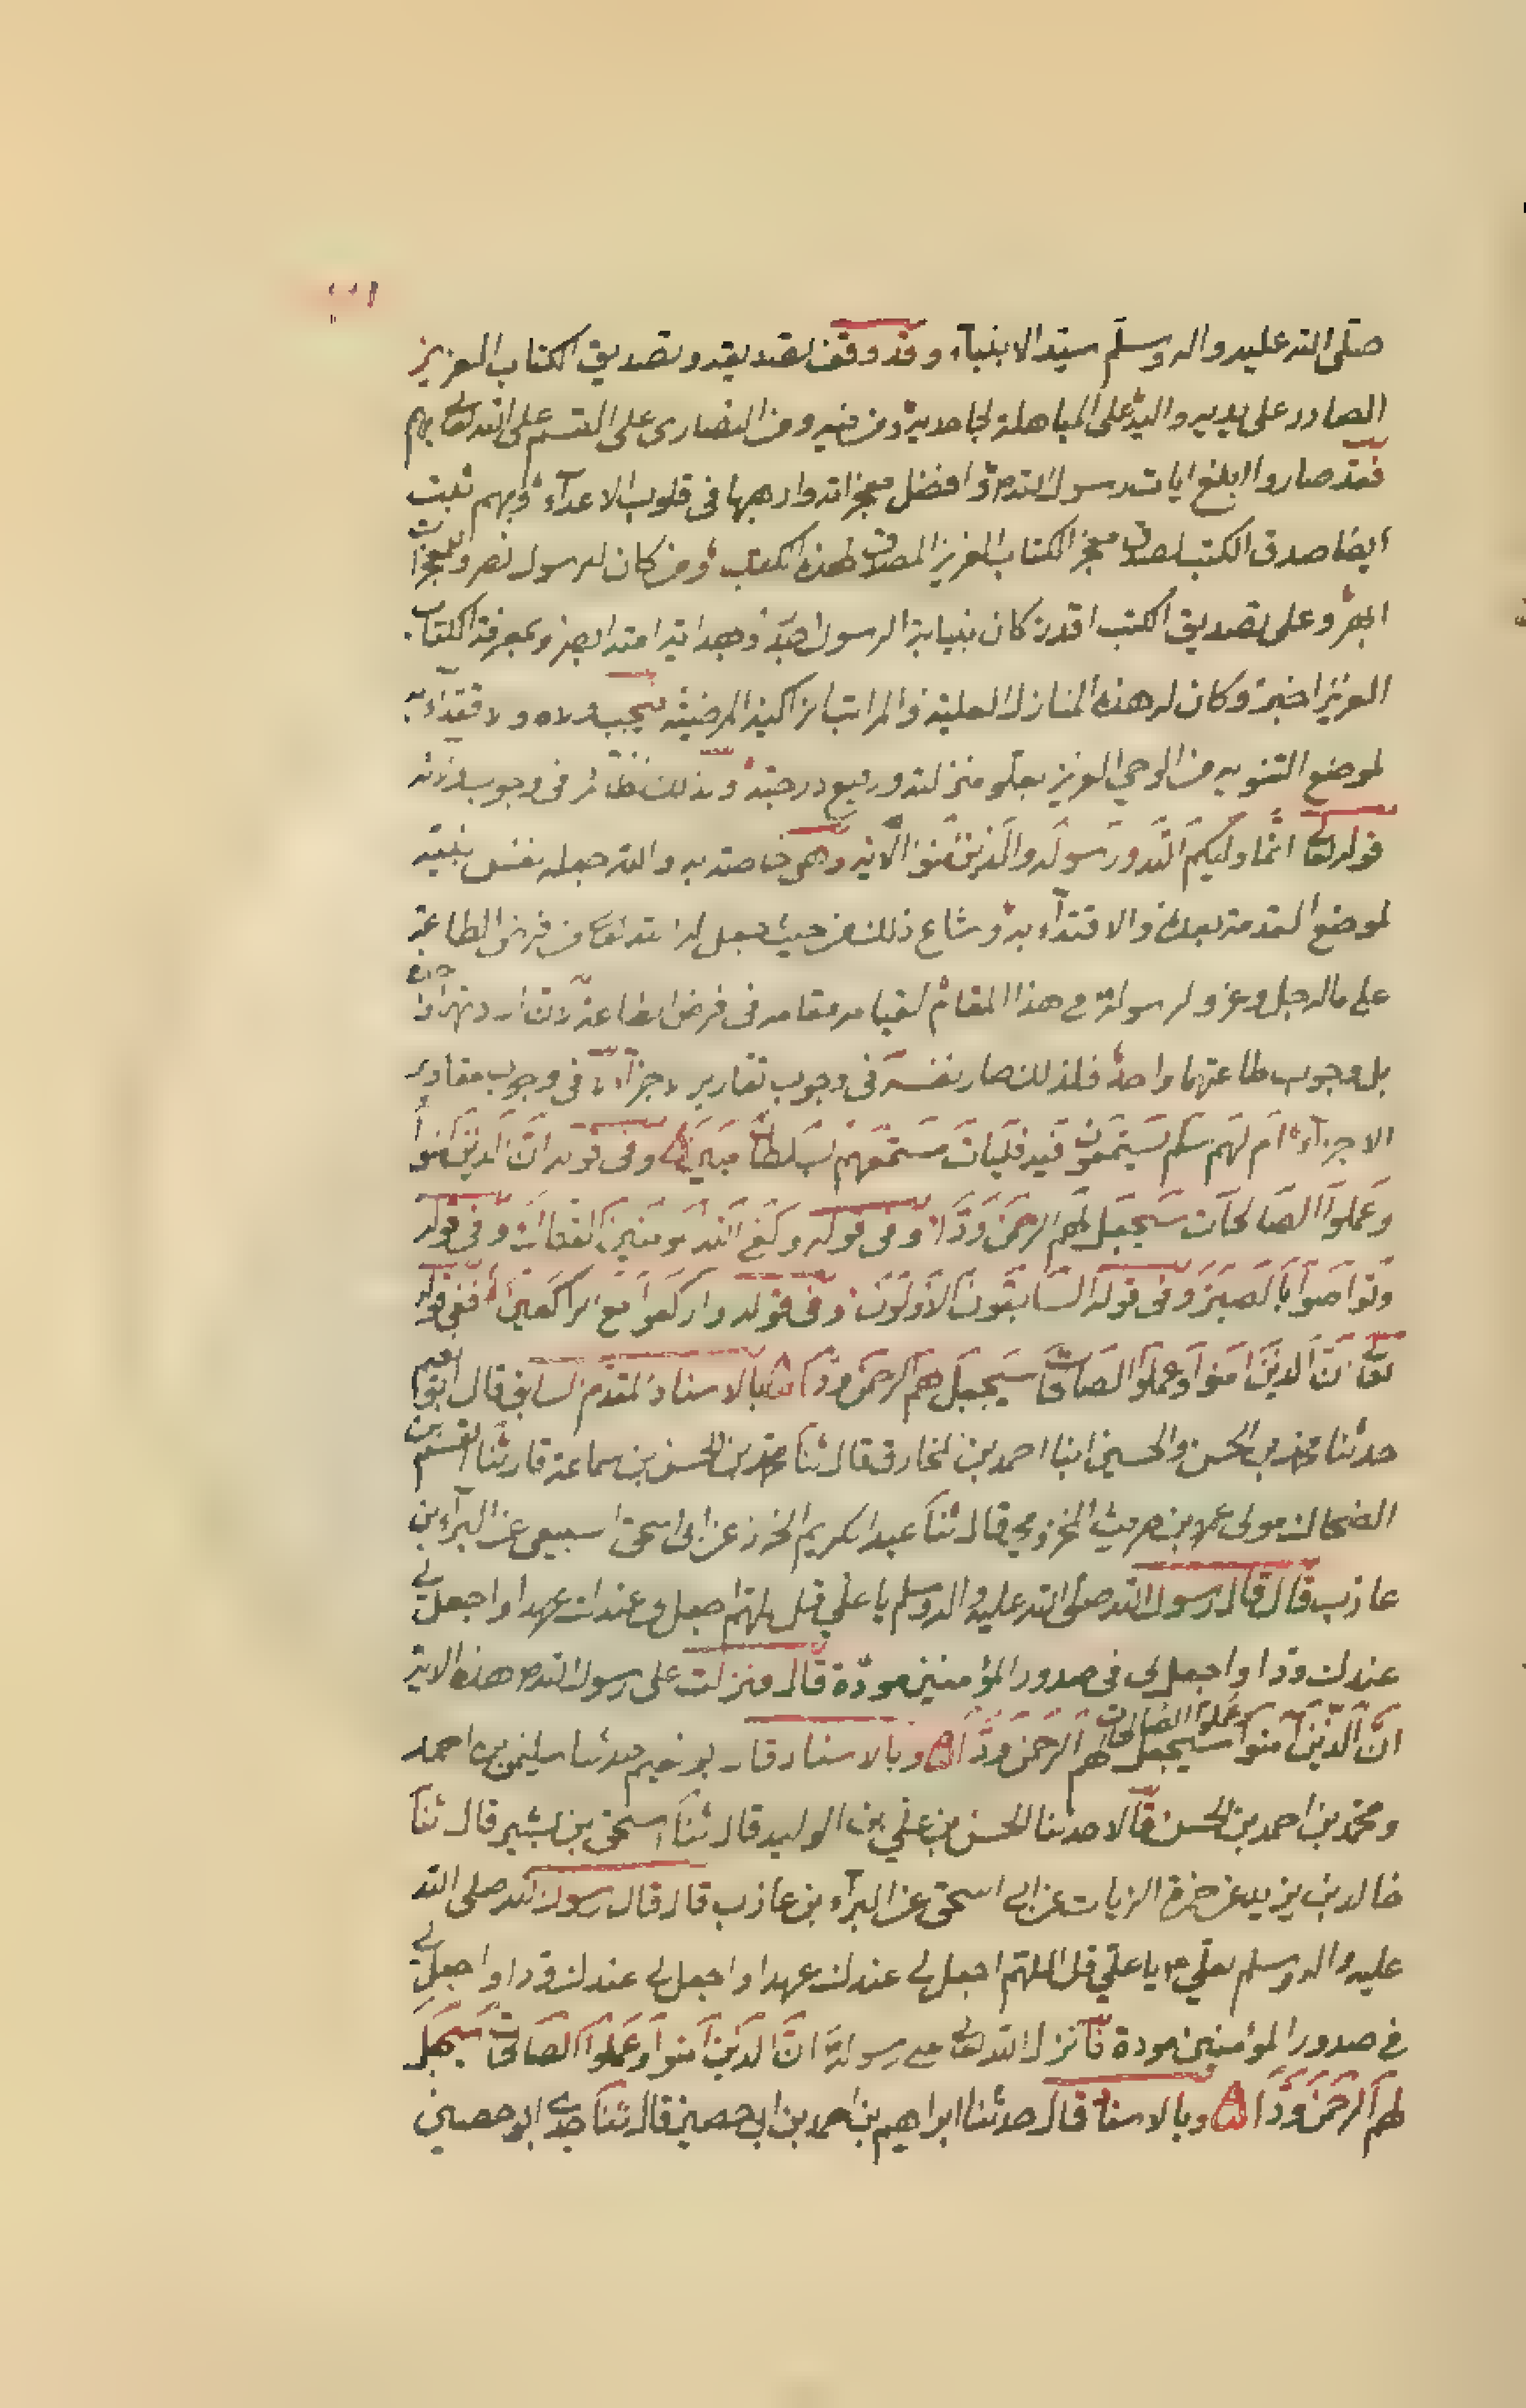 صلى الله عليه واله وسلم سيد الانبياء وقد وقف تصديقه وتصديق الكتاب العزيز
الصادر على يديه واليه على المباهلة لجاحديه ومن فيه ومن النصارى على القسم على الله تعالى بهم
فقد صاروا ابلغ ايات رسول الله ص وافضل معجزاته وارهبها فى قلوب الاعداء وبهم ثبت
ايضا صدق الكتب معجز الكتاب العزيز المصدق لهذه الكتب ومن كان للرسول نصر وللمعجزات
وعلى تصديق الكتب اقدر كان بنيابة الرسول وهداية امته وبمعرفة الكتاب
العزيز اخبر وكان له هذه المنازل العلية والمراتب الزاكية المرضية يجب ولاه ولاقتداء به
لموضع التنويه من الوحي العزيز بعلو منزلته ورفيع درجته ولذلك نظائر فى وجوب ولائه
قوله تعالى انما وليكم الله ورسوله والذين امنوا الاية وهى خاصة به والله جعله نفس نبيه
لموضع القدمة بعده والاقتداء به وشاع ذلك من حيث جعل له الله تعالى من فرض الطاعة
على ما له جل وعز ولرسوله ص هذا المقام لقيامه مقامه فى فرض الطاعة
بل وجوب طاعتهما واحد فلذلك صار نفسه فى وجوب تقارير لاجزاء فى وجوب مقادير
الاجزاء ام لهم سلم يستمعون فيه فليات مستمعهم بسلطان مبين وفى قوله ان الذين امنوا
وعملوا الصالحات سيجعل لهم الرحمن ودا وفى قوله وكفى الله المومنين القتال وفى قوله
وتواصوا بالصبر وفى قوله السابقون الاولون وفى قوله واركعوا مع الراكعين ففى قوله
تعالى ان الذين امنوا وعملوا الصالحات سيجعل لهم الرحمن ودا بالاسناد المقدم السابق قال ابو نعيم
حدثنا محمد بن الحسن والحسين ابنا احمد بن المخارق قال ثنا محمد بن الحسن بن سماعة قال ثنا القسم بن
الضحاك مولى عمرو بن حريث المخزومي قال ثنا عبد الكريم الخزز عن ابى اسحق السبيعى عن البراء بن
عازب قال قال رسول الله صلى الله عليه واله وسلم يا على قل اللهم اجعل لى عندك عهدا واجعل لى
عندك ودا واجعل لى فى صدور المؤمنين مودة قال فنزلت على رسول الله ص هذه الاية
ان الذين امنوا وعملوا الصالحات سيجعل لهم الرحمن ودا وبالاسناد قال ابو نعيم حدثنا سليمن بن احمد
ومحمد بن احمد بن الحسن قالا حدثنا الحسن بن علي بن الوليد قال ثنا اسحق بن بشير قال ثنا
خالد بن يزيد عن حمزة الزيات عن ابى اسحق عن البراء بن عازب قال قال رسول الله صلى الله
عليه واله وسلم لعلي يا علي قل اللهم اجعل لى عندك عهدا واجعل لى عندك ودا واجعل لى
فى صدور المؤمنين مودة فانزل الله تعالى على رسوله ان الذين امنوا وعملوا الصالحات سيجعل
لهم الرحمن ودا وبالاسناد قال حدثنا ابراهيم بن احمد بن ابى حصين قال ثنا جدى ابو حصين